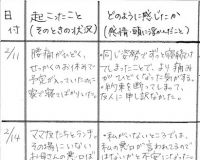 日付
起こったこと
(そのときの状況)
どのように感じたか
(感情・頭に浮んだこと)
2/11
腰痛がひどく、
せっかくのお休みで
予定が入っていたのに
家で寝てばかりいた。
・同じ姿勢でずっと寝続け
てしまったことで、より痛み
がひどくなった気がする。
・約束を断ってしまって、
友人に申し訳なかった。
2/14
ママ友たちとランチ。
その場にいない
お母さんの悪口ば
・私がいないところでは、
私の悪口が言われてるので
はないか?と不安になった。